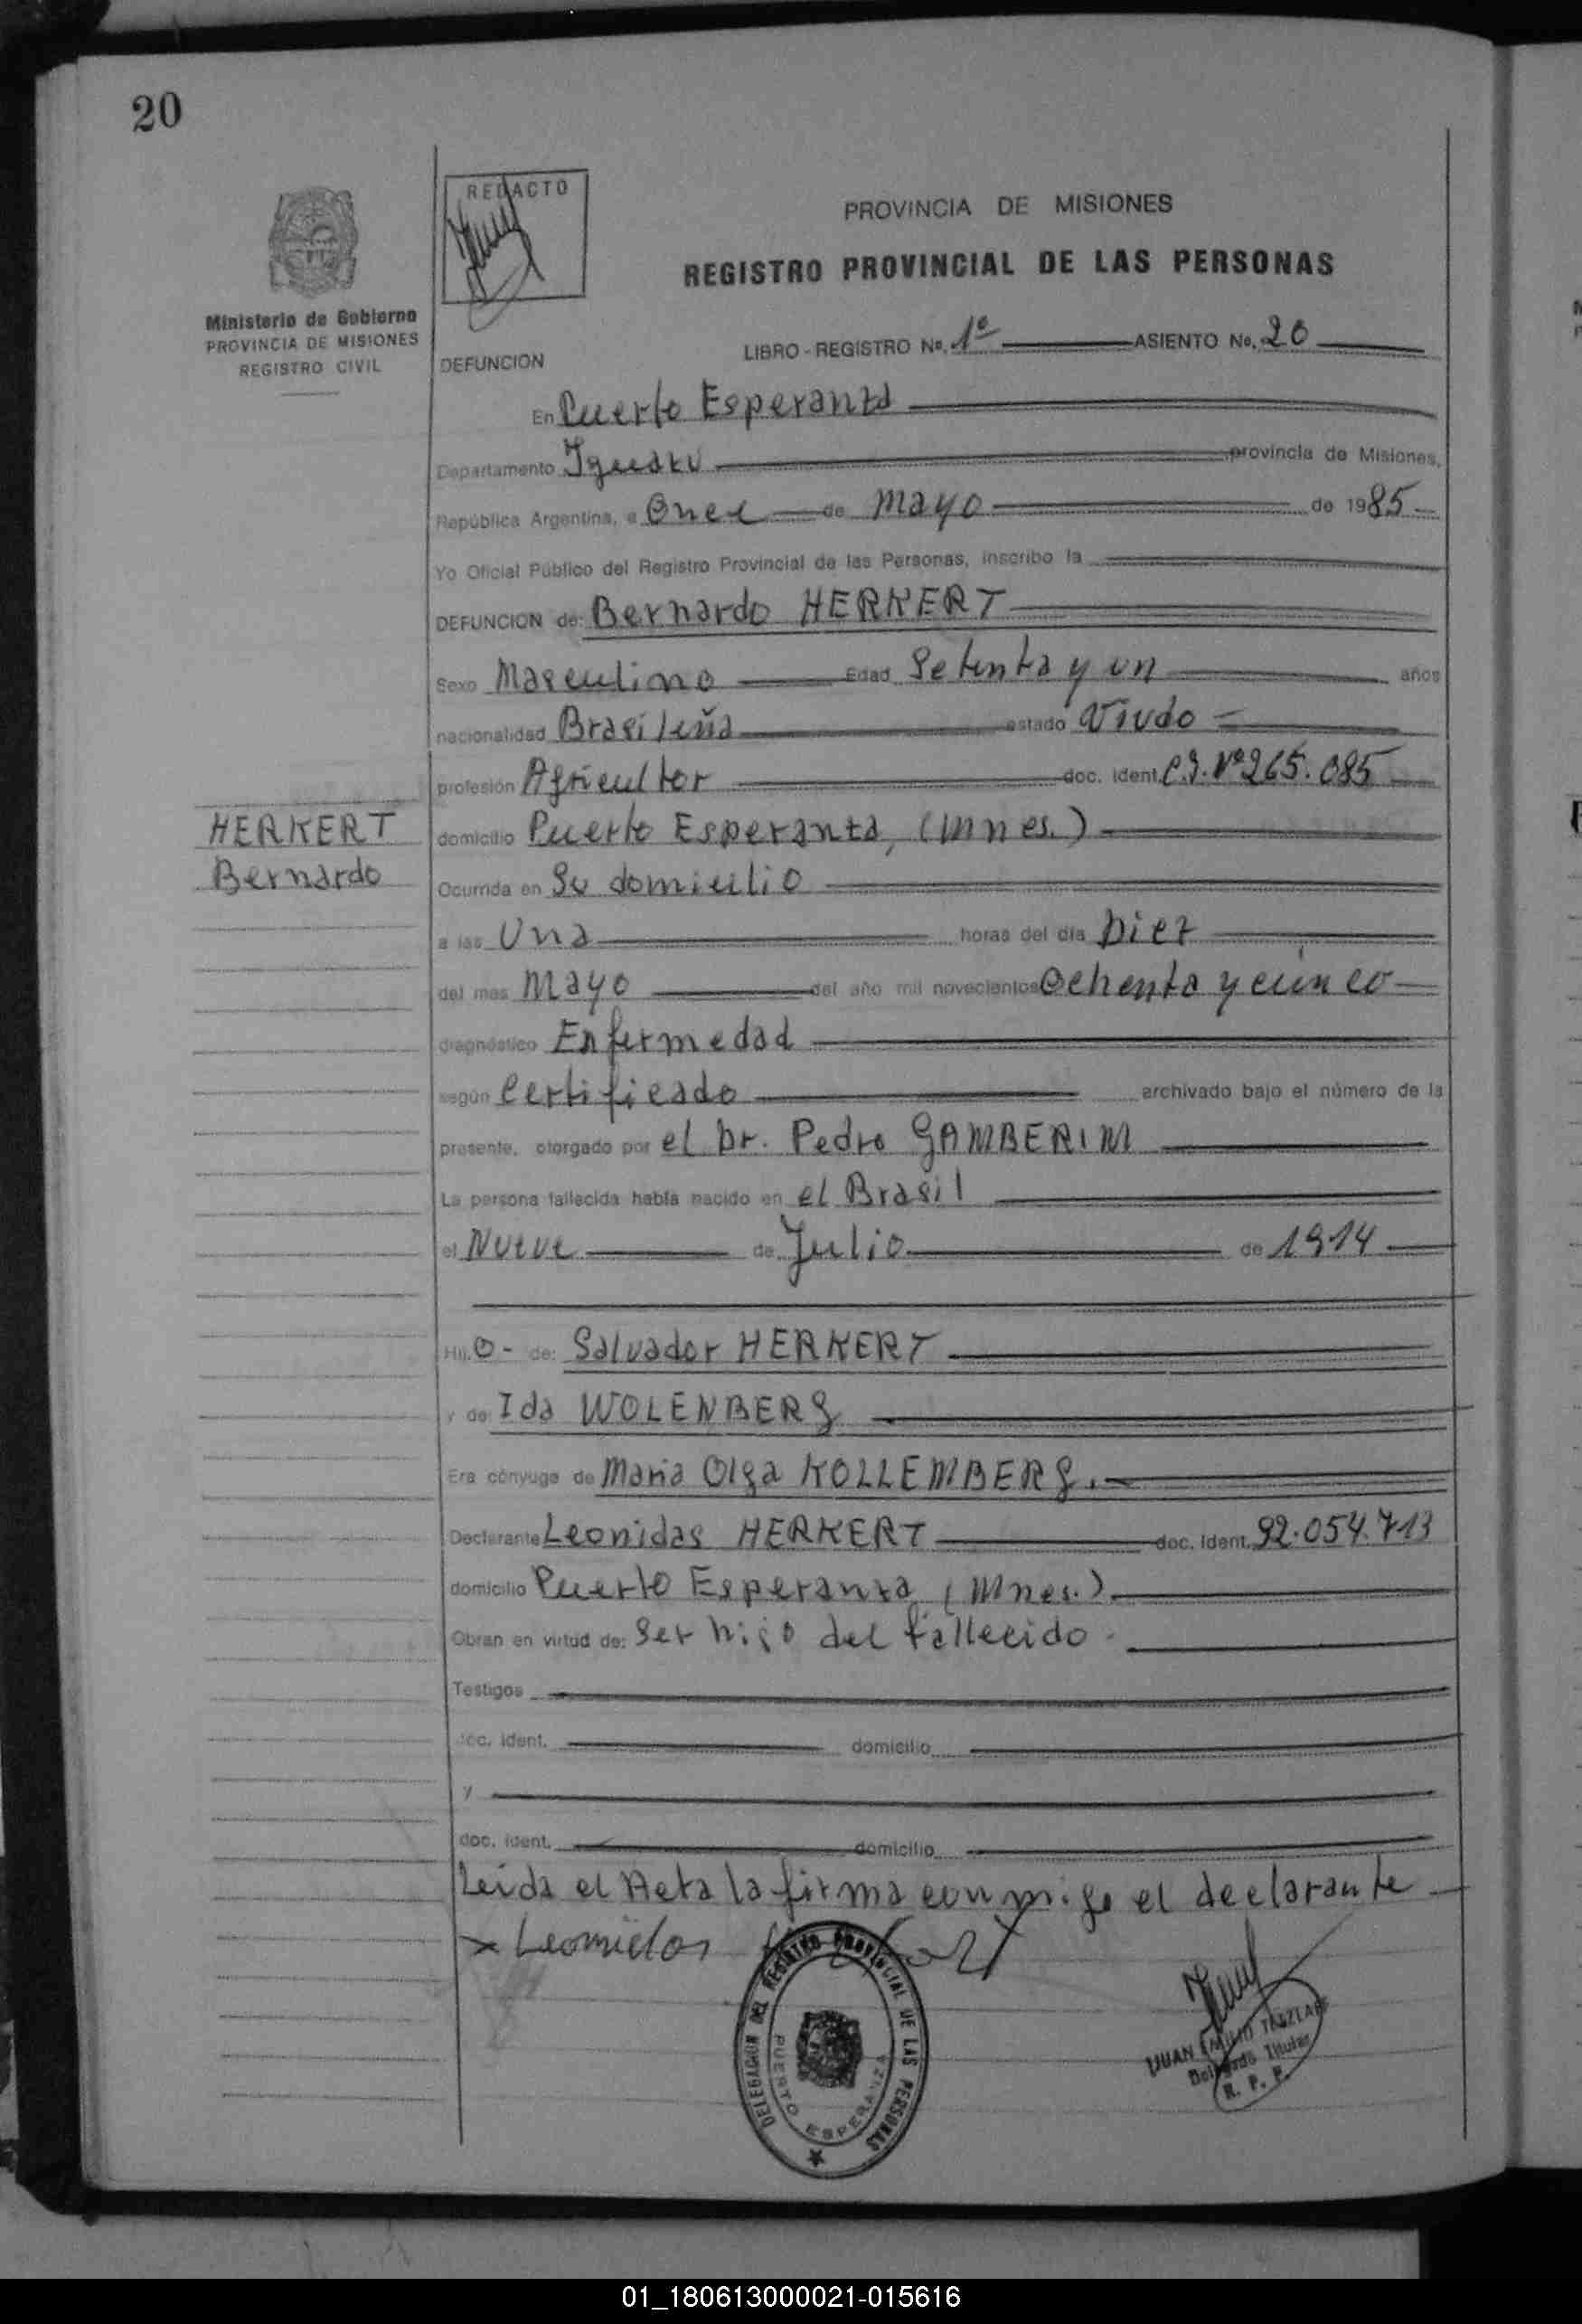 20
REDACTO
PROVINCIA DE MISIONES
REGISTRO PROVINCIAL DE LAS PERSONAS
Ministerio de Gobierno
PROVINCIA DE MISIONES
REGISTRO CIVIL
LIBRO - REGISTRO No. 1º ASIENTO No. 20
DEFUNCION
En Puerto Esperanza
Departamento Iguazú provincia de Misiones,
República Argentina, a Once de Mayo de 1985
Yo Oficial Público del Registro Provincial de las Personas, inscribo la
DEFUNCION de: Bernardo HERKERT
Sexo Masculino Edad Setenta y un años
nacionalidad Brasileña estado Viudo
profesión Agricultor doc. ident. C.I. Nº 265.085
HERKERT
Bernardo
domicilio Puerto Esperanza, (Mnes.)
Ocurrida en Su domicilio
a las Una horas del día Diez
del mes Mayo del año mil novecientos Ochenta y cinco
diagnóstico Enfermedad
según Certificado archivado bajo el número de la
presente, otorgado por el Dr. Pedro GAMBERINI
La persona fallecida había nacido en el Brasil
el Nueve de Julio de 1914
Hij o - de: Salvador HERKERT
y de Ida WOLENBERG
Era cónyuge de Maria Olga KOLLEMBERG.
Declarante Leonidas HERKERT doc. ident. 92.054.713
domicilio Puerto Esperanza (Mnes.)
Obran en virtud de: Ser hijo del fallecido.
Testigos
doc. ident. domicilio
y
doc. ident. domicilio
Leida el Acta la firma conmigo el declarante
x Leonidas
DELEGACION DEL REGISTRO PROVINCIAL DE LAS PERSONAS
PUERTO ESPERANZA
JUAN EMILIO
Delegado Titular
R. P. P.
01_180613000021-015616